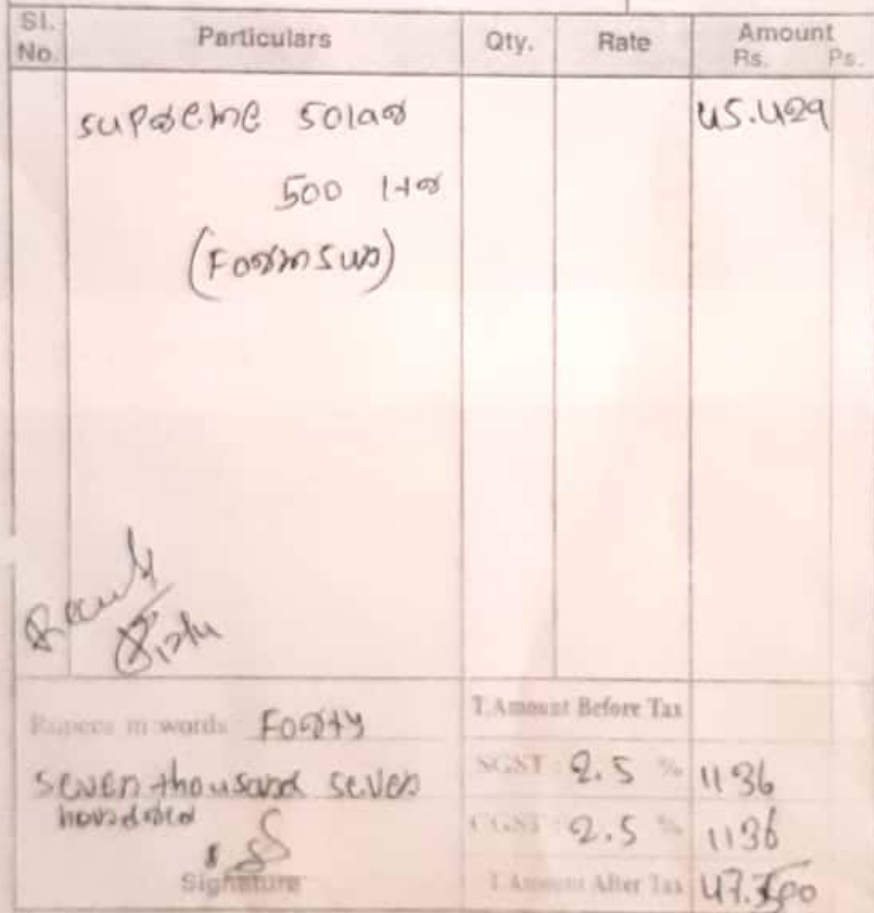 Sl. No.
Particulars
Qty.
Rate
Amount
Rs. Ps.
supreme solar
45.429
500 ltr
(Formsun)
Rupees in words Forty
seven thousand seven
hundred
Signature
T.Amount Before Tax
SGST 2.5 % 1136
CGST 2.5 % 1136
T.Amount After Tax 47.700